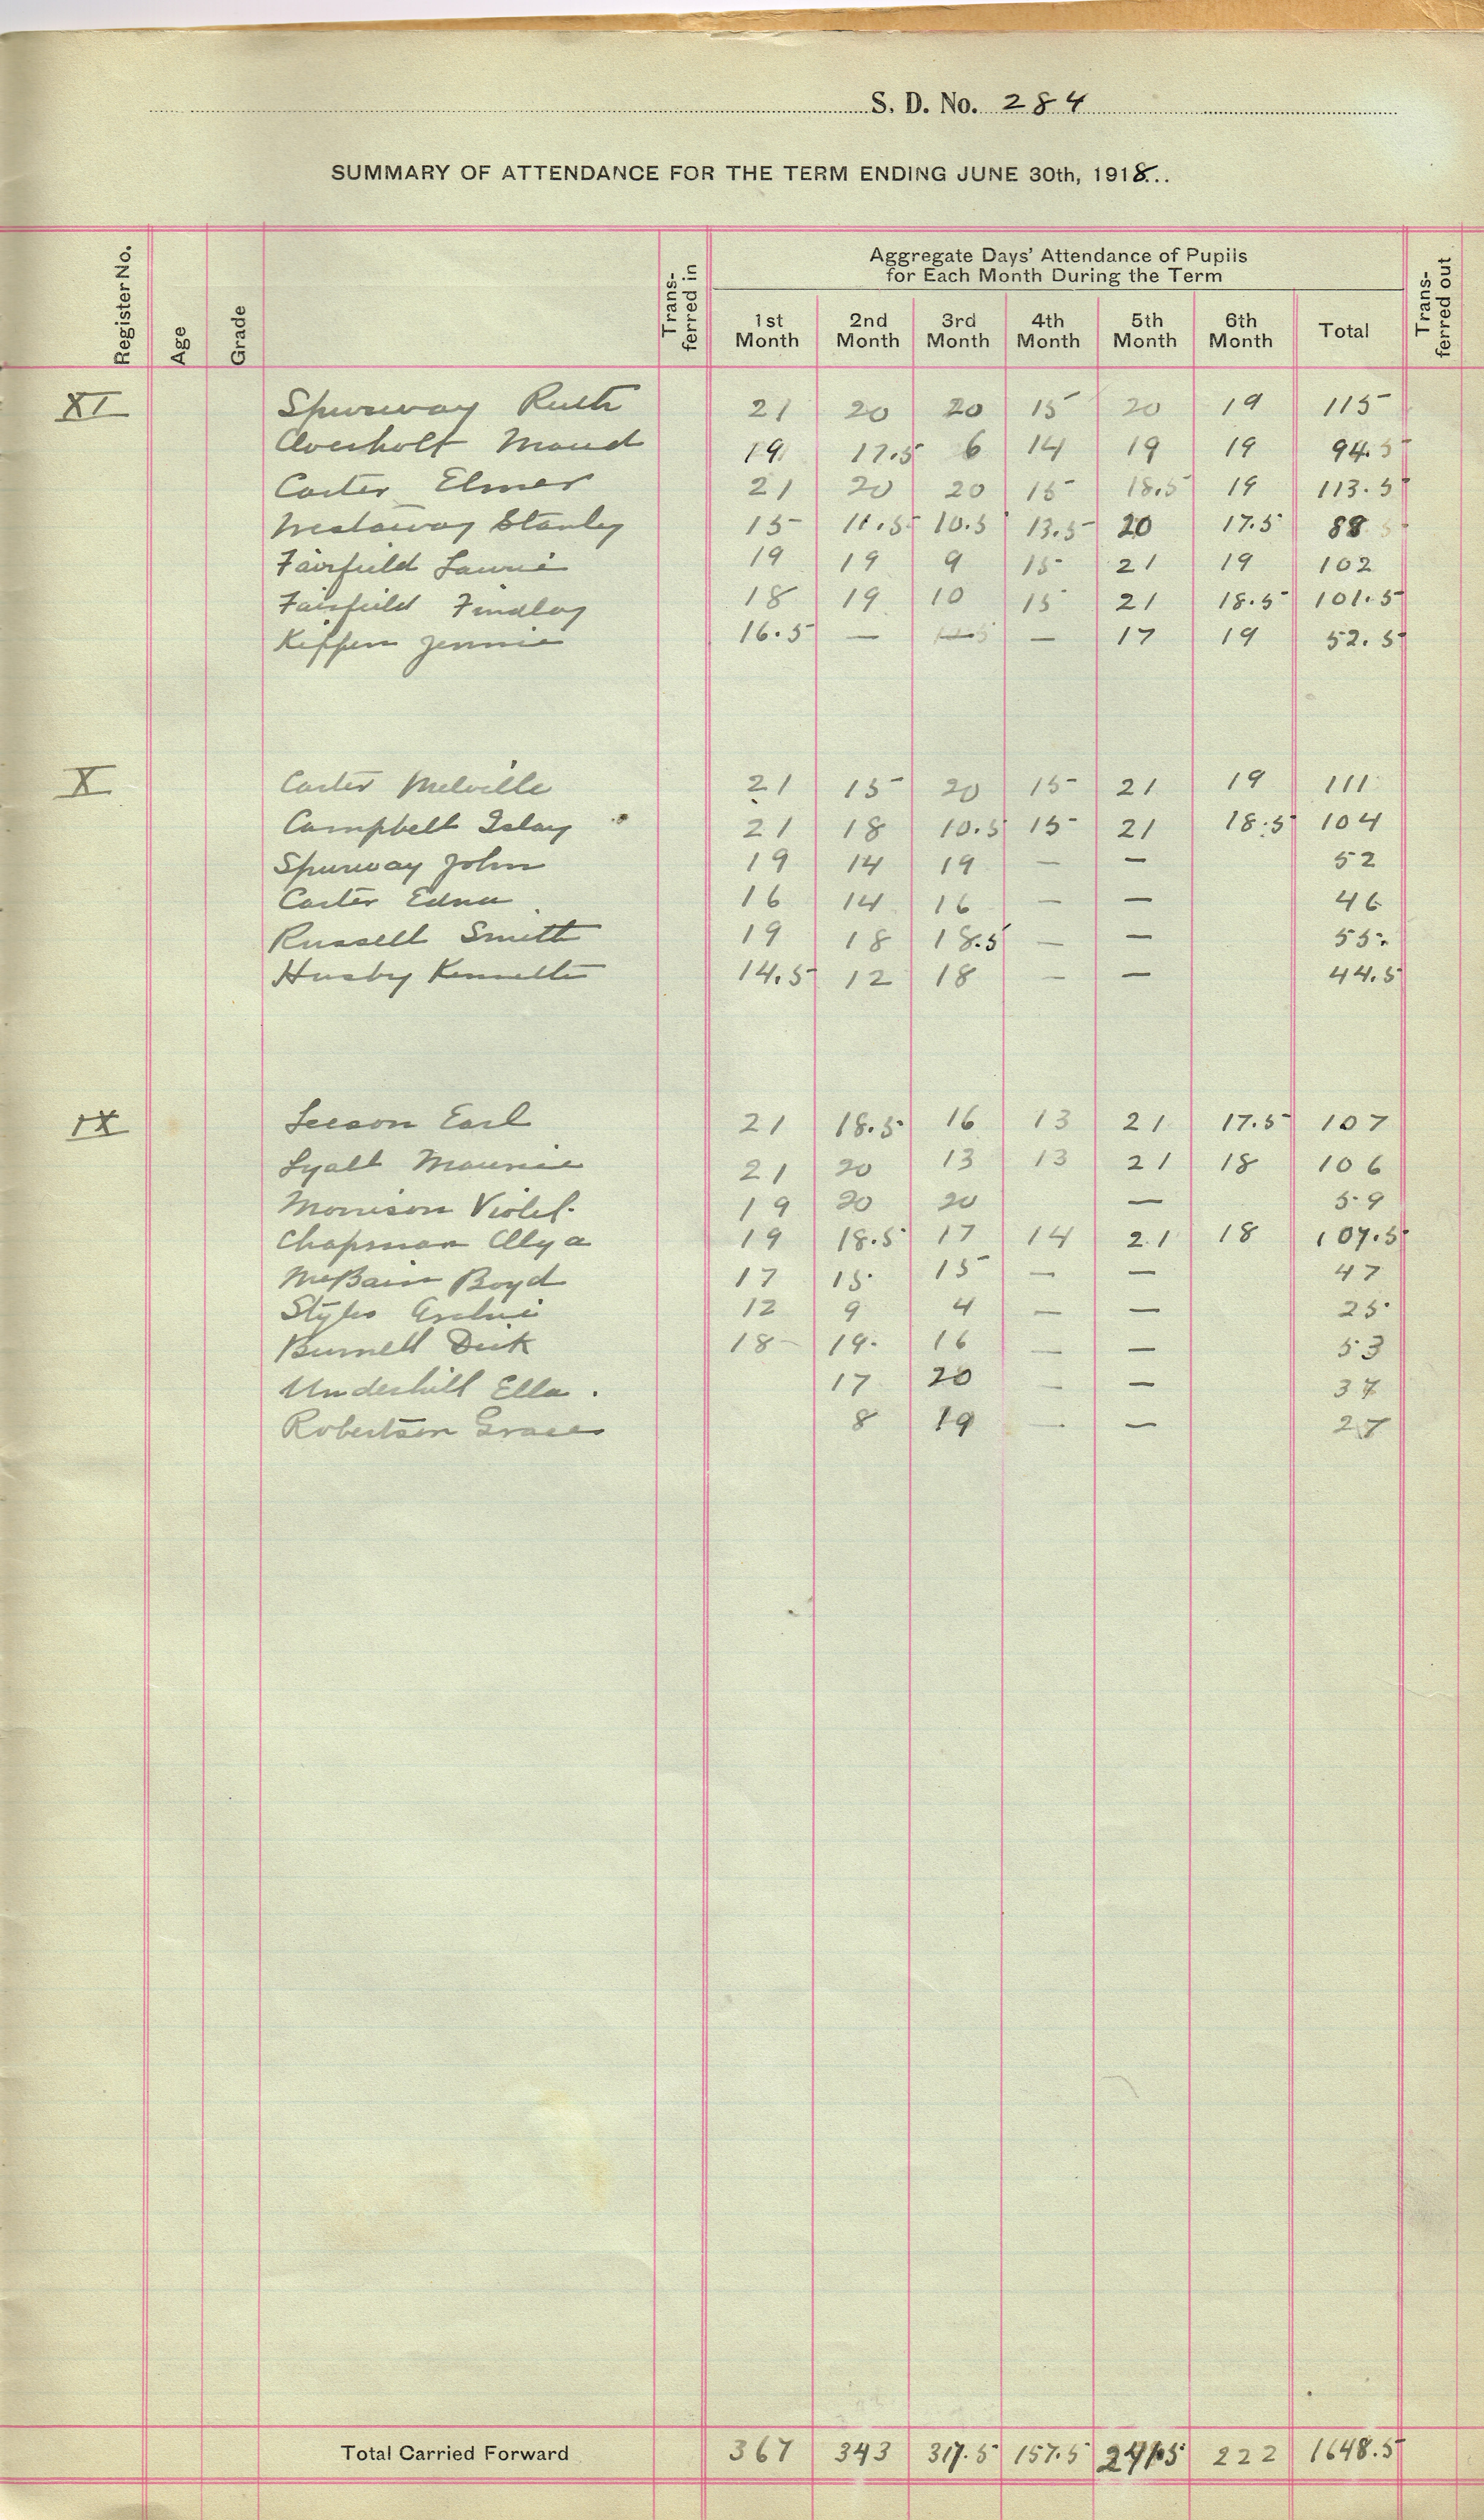 S. D. No. 284
SUMMARY OF ATTENDANCE FOR THE TERM ENDING JUNE 30th, 1918...
Register No. Age Grade Transferred in Aggregate Days' Attendance of Pupils for Each Month During the Term Transferred out
1st Month 2nd Month 3rd Month 4th Month 5th Month 6th Month Total
XI Spurway Ruth 21 20 20 15 20 19 115
Overholt Maud 19 17.5 6 14 19 19 94.5
Carter Elmer 21 20 20 15 18.5 19 113.5
Westaway Stanley 15 11.5 10.5 13.5 20 17.5 88
Fairfield Laurie 19 19 9 15 21 19 102
Fairfield Findlay 18 19 10 15 21 18.5 101.5
Kiffen Jennie 16.5 — — — 17 19 52.5
X Carter Melville 21 15 20 15 21 19 111
Campbell Islay 21 18 10.5 15 21 18.5 104
Spurway John 19 14 19 — — 52
Carter Edna 16 14 16 — — 46
Russell Smith 19 18 18.5 — — 55.
Husby Kenneth 14.5 12 18 — — 44.5
IX Leeson Earl 21 18.5 16 13 21 17.5 107
Lyall Maurice 21 20 13 13 21 18 106
Morrison Violet. 19 20 20 — 59
Chapman Allya 19 18.5 17 14 21 18 107.5
McBain Boyd 17 15 15 — — 47
Styles Archie 12 9 4 — — 25
Burnell Dick 18 19 16 — — 53
Underhill Ella. 17 20 — — 37
Robertson Grace 8 19 — — 27
Total Carried Forward 367 343 317.5 157.5 241.5 222 1648.5